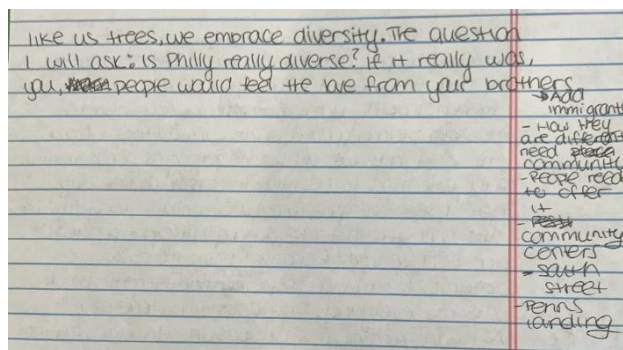 like us trees, we embrace diversity. The question
I will ask: is Philly really diverse? If it really was,
you, people would feel the love from your brothers
→Add
immigrants
- How they
are different
need
community
-People need
to offer
it
-
community
centers
- South
street
-Penns
landing